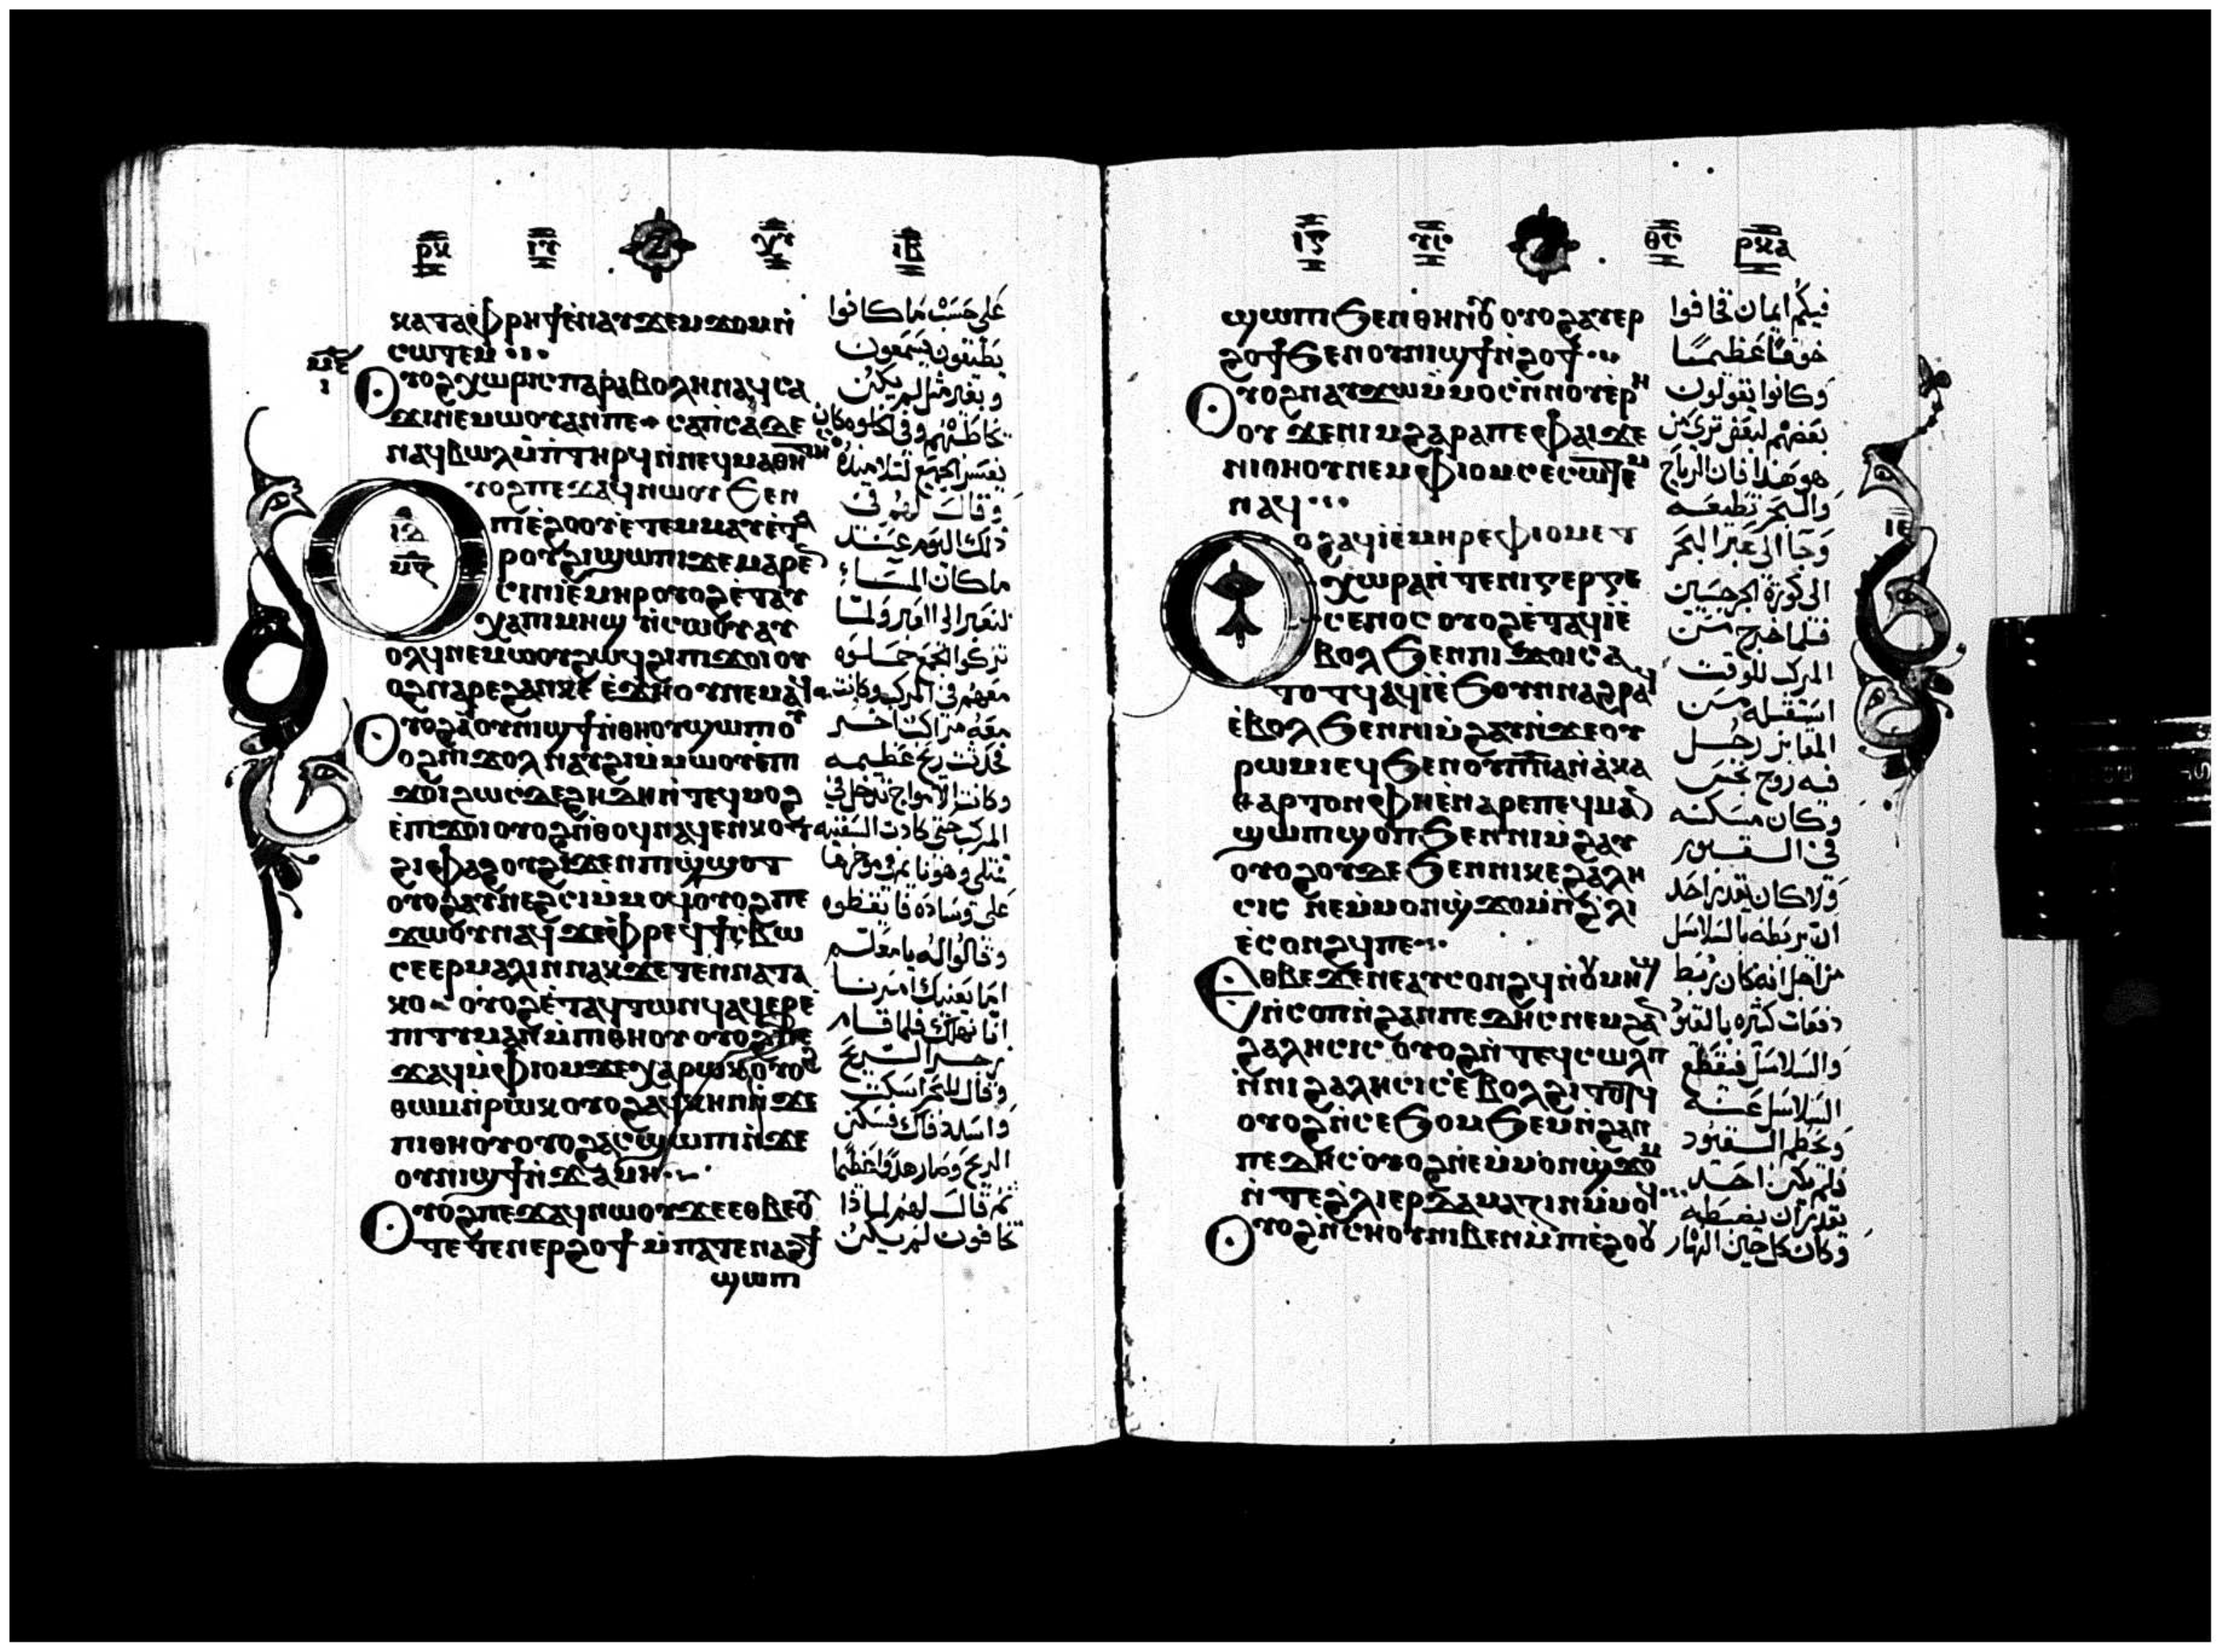 ⲣⲕ ⲓⲃ
ⲕⲁⲧⲁⲫⲣⲏϯⲉⲛⲁⲩϫⲉⲙϫⲟⲙⲛ̀
ⲥⲱⲧⲉⲙ
ⲟⲩⲟϩⲭⲱⲣⲓⲥⲡⲁⲣⲁⲃⲟⲗⲏⲛⲁϥⲥⲁ
ϫⲓⲛⲉⲙⲱⲟⲩⲁⲛⲡⲉ ⲥⲁⲡ̀ⲥⲁⲇⲉ
ⲛⲁϥⲃⲱⲗⲙ̀ⲡⲧⲏⲣϥⲛ̀ⲛⲉϥⲙⲁⲑⲏⲧⲏⲥ
ⲟⲩⲟϩⲡⲉϫⲁϥⲛⲱⲟⲩϧⲉⲛ
ⲡⲓⲉ̀ϩⲟⲟⲩⲉ̀ⲧⲉⲙⲙⲁⲩⲉ̀ⲧⲁ
ⲣⲟⲩϩⲓϣⲱⲡⲓϫⲉⲙⲁⲣⲉⲛ
ⲥⲓⲛⲓⲉ̀ⲙⲏⲣⲟⲩⲟϩⲉ̀ⲧⲁⲩ
ⲭⲁⲡⲓⲙⲏϣ ⲛ̀ⲥⲱⲟⲩⲁⲩ
ⲟⲗϥⲛⲉⲙⲱⲟⲩϩⲱϥϩⲓⲡⲓϫⲟⲓⲟⲩ
ⲟϩⲛⲁⲣⲉϩⲁⲛⲕⲉ ⲉ̀ϫⲏⲟⲩⲛⲉⲙⲁϥ
ⲟⲩⲟϩⲁ̀ⲟⲩⲛⲓϣϯⲛ̀ⲑⲏⲟⲩϣⲱⲡⲓⲟⲩ
ⲟϩⲛⲓϫⲟⲗ ⲛⲁⲩϩⲓⲙ̀ⲙⲱⲟⲩⲉ̀ⲡ
ϫⲟⲓϩⲱⲥⲇⲉϩⲏⲇⲏⲛ̀ⲧⲉϥⲙⲟϩ
ⲉ̀ⲡϫⲟⲓⲟⲩⲟϩⲛ̀ⲑⲟϥⲛⲁϥⲉⲛⲕⲟⲧ
ϩⲓⲫⲁϩⲟⲩϩⲓϫⲉⲛⲡϣϣⲟⲧ
ⲟⲩⲟϩⲁⲩⲛⲉϩⲥⲓⲙ̀ⲙⲟϥⲟⲩⲟϩⲡⲉ
ϫⲱⲟⲩⲛⲁϥ ϫⲉⲫⲣⲉϥϯⲥ̀ⲃⲱ
ⲥⲉⲉⲣⲙⲁⲗⲓⲛⲛⲁⲕϫⲉⲧⲉⲛⲛⲁⲧⲁ
ⲕⲟ ⲟⲩⲟϩⲉ̀ⲧⲁϥⲧⲱⲛϥⲁϥⲉⲣⲉ̀
ⲡⲓⲧⲓⲙⲁⲛⲙ̀ⲡⲓⲑⲏⲟⲩ ⲟⲩⲟϩⲡⲉ
ϫⲁϥⲙ̀ⲫⲓⲟⲙϫⲉⲭⲁⲣⲱⲕⲟⲩⲟϩ
ⲑⲱⲙⲛ̀ⲣⲱⲕⲟⲩⲟϩⲁϥϩⲏⲛⲛ̀ϫⲉ
ⲡⲓⲑⲏⲟⲩⲟⲩⲟϩⲁⲥϣⲱⲡⲓⲛ̀ϫⲉ
ⲟⲩⲛⲓϣϯⲛ̀ϫⲁⲙⲏ
ⲟⲩⲟϩⲡⲉϫⲁϥⲛⲱⲟⲩϫⲉⲉⲑⲃⲉⲟⲩ
ⲧⲉⲧⲉⲛⲉⲣϩⲟϯ ⲙ̀ⲡⲁⲧⲉⲛⲁϩϯ
ϣⲱⲡ
على حسب ما كانوا
يطيقون يسمعون
وبغير مثل لم يكن
يخاطبهم وفي الخلوه كان
يفسر الجميع لتلاميذه
وقال لهم في
ذلك اليوم عند
ما كان المساء
لنعبر الى العبر ولما
تركوا الجمع حملوه
معهم في المركب وكانت
معه مراكب اخر
فحدثت ريح عظيمه
وكانت الامواج تدخل في
المركب حتى كادت السفينه
تمتلي وهو نائم في موخرها
على وساده فايقظوه
وقالوا له يا معلم
اما يعنيك امرنا
انا نهلك فلما قام
زجر الريح
وقال للبحر اسكت
واسد فاك فسكن
الريح وصار هدوا عظيما
ثم قال لهم لماذا
تخافون لم يكن
ⲣⲕⲁ
ϣⲱⲡ ϧⲉⲛⲑⲏⲛⲟⲩ ⲟⲩⲟϩⲁⲩⲉⲣ
ϩⲟϯϧⲉⲛⲟⲩⲛⲓϣϯⲛ̀ϩⲟϯ
ⲟⲩⲟϩⲛⲁⲩϫⲱⲙ̀ⲙⲟⲥⲛ̀ⲛⲟⲩⲉⲣⲏ
ⲟⲩ ϫⲉⲛⲓⲙϩⲁⲣⲁⲡⲉⲫⲁⲓϫⲉ
ⲛⲓⲑⲏⲟⲩⲛⲉⲙⲫⲓⲟⲙⲥⲉⲥⲱⲧⲉⲙ
ⲛⲁϥ
ⲟⲩⲟϩⲁϥⲓ̀ⲉ̀ⲙⲏⲣⲉ̀ⲫⲓⲟⲙⲉ̀ⲧ
ⲭⲱⲣⲁⲛ̀ⲧⲉⲛⲓⲅⲉⲣⲅⲉ
ⲥⲉⲛⲟⲥ ⲟⲩⲟϩⲉ̀ⲧⲁϥⲓ̀ⲉ̀
ⲃⲟⲗ ϧⲉⲛⲡⲓϫⲟⲓⲥⲁ
ⲧⲟⲧϥⲁϥⲓ̀ⲉ̀ϧⲟⲩⲛⲛⲁϩⲣⲁϥ
ⲉ̀ⲃⲟⲗ ϧⲉⲛⲛⲓⲙ̀ϩⲁⲩⲛ̀ϫⲉⲟⲩ
ⲣⲱⲙⲓⲉϥϧⲉⲛⲟⲩⲡⲛⲁⲛ̀ⲁⲕⲁ
ⲑⲁⲣⲧⲟⲛⲫⲏⲉ̀ⲛⲁⲣⲉⲡⲉϥⲙⲁⲛ
ϣⲱⲡⲓϣⲟⲡϧⲉⲛⲛⲓⲙ̀ϩⲁⲩ
ⲟⲩⲟϩⲟⲩⲇⲉϧⲉⲛⲛⲓⲕⲉϩⲁⲗⲏ
ⲥⲓⲥ ⲛⲉⲙ̀ⲙⲟⲛϣϫⲟⲙⲛ̀ϩ̀ⲗⲓ
ⲉ̀ⲥⲟⲛϩϥⲡⲉ
ⲉⲑⲃⲉϫⲉⲛⲉⲁⲩⲥⲟⲛϩϥⲛ̀ⲟⲩⲙⲏϣ
ⲛ̀ⲥⲟⲡⲛ̀ϩⲁⲛⲡⲉⲇⲏⲥⲛⲉⲙϩⲁⲛ
ϩⲁⲗⲏⲥⲓⲥ ⲟⲩⲟϩⲛ̀ⲧⲉϥⲥⲱⲗⲡ
ⲛ̀ⲛⲓϩⲁⲗⲏⲥⲓⲥⲉ̀ⲃⲟⲗϩⲓⲧⲟⲧϥ
ⲟⲩⲟϩⲛ̀ⲥⲉϧⲟⲙϧⲉⲙⲛ̀ϩⲁⲛ
ⲡⲉⲇⲏⲥⲟⲩⲟϩⲛⲉⲙ̀ⲙⲟⲛϣϫⲟⲙ
ⲛ̀ⲧⲉϩ̀ⲗⲓⲉⲣⲇⲁⲙⲁⲍⲓⲛⲙ̀ⲙⲟϥ
ⲟⲩⲟϩⲛ̀ⲥⲏⲟⲩⲛⲓⲃⲉⲛⲙ̀ⲡⲓⲉ̀ϩⲟⲟⲩ
فيكم ايمان فخافوا
خوفا عظيما
وكانوا يقولون
بعضهم لبعض ترى من
هو هذا فان الرياح
والبحر تطيعه
وجا الى عبر البحر
الى كورة الجرجسيين
فلما خرج من
المركب للوقت
استقبله من
المقابر رجل
فيه روح نجس
وكان مسكنه
في القبور
ولا كان يقدر احد
ان يربطه بالسلاسل
من اجل انه كان يربط
دفعات كثيره بالقيود
والسلاسل فيقطع
السلاسل عنه
ويحطم القيود
فلم يكن احد
يقدر ان يضبطه
وكان كل حين النهار